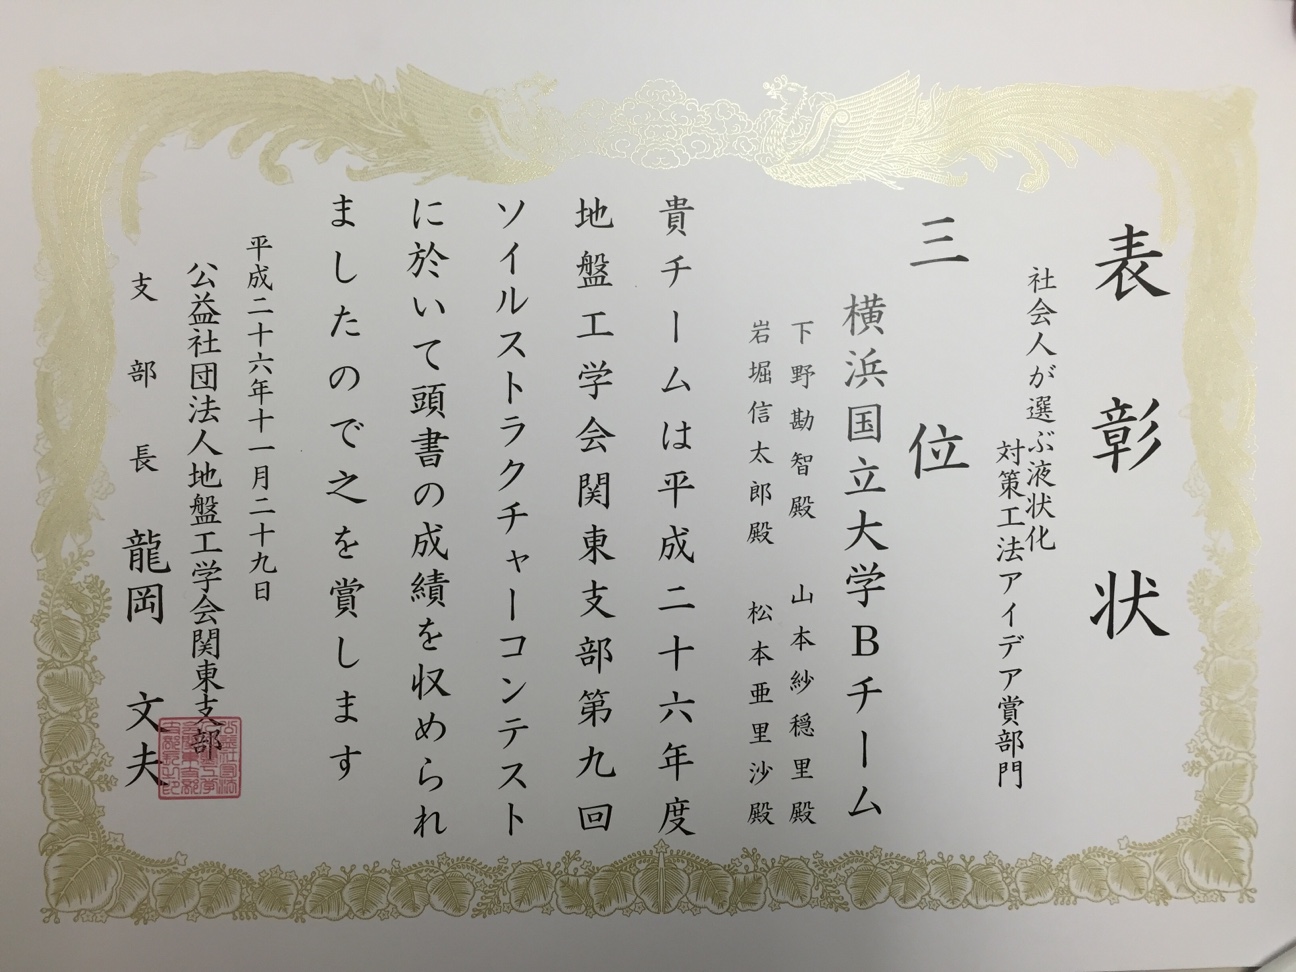 表彰状
社会人が選ぶ液状化
対策工法アイデア賞部門
三位
横浜国立大学Bチーム
下野勘智殿 山本紗穏里殿
岩堀信太郎殿 松本亜里沙殿
貴チームは平成二十六年度
地盤工学会関東支部第九回
ソイルストラクチャーコンテスト
に於いて頭書の成績を収められ
ましたので之を賞します
平成二十六年十一月二十九日
公益社団法人地盤工学会関東支部
支部長 龍岡文夫